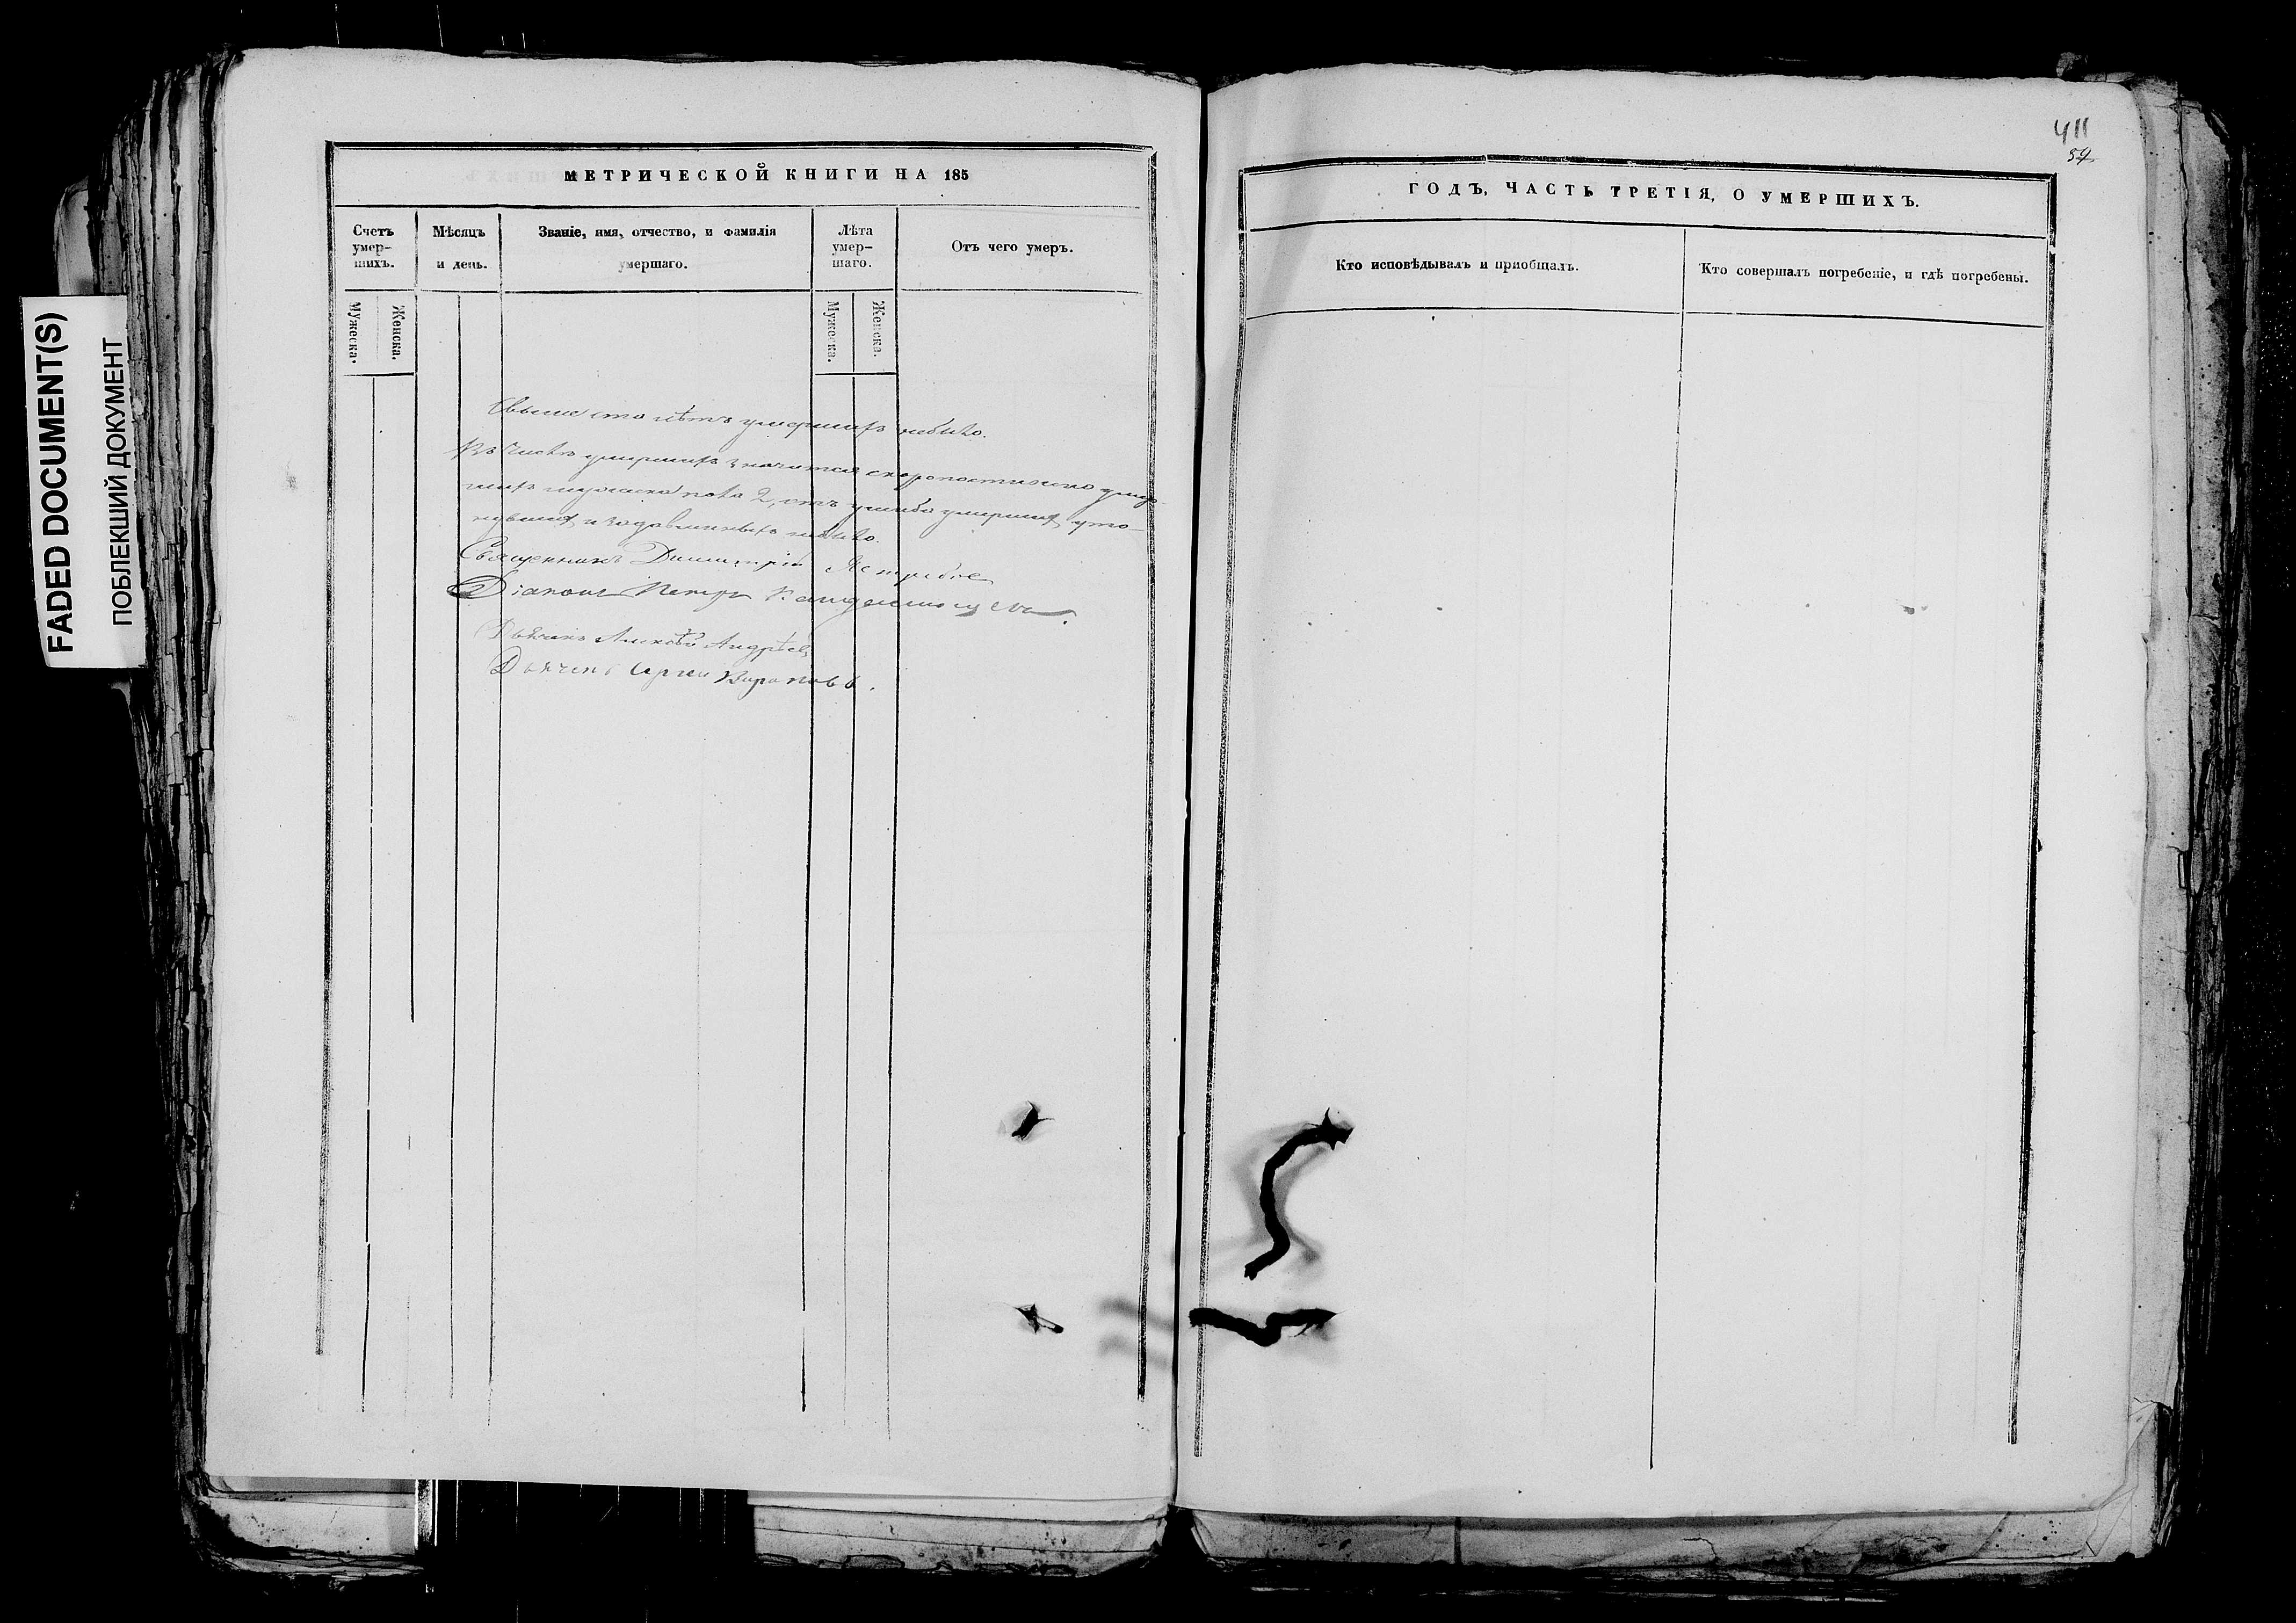 FADED DOCUMENT(S)
ПОБЛЕКШИЙ ДОКУМЕНТ
МЕТРИЧЕСКОЙ КНИГИ НА 185
Счетъ умер-шихъ.
Мѣсяцъ и день.
Званіе, имя, отчество, и фамилія умершаго.
Лѣта умер-шаго.
Отъ чего умеръ.
Мужеска.
Женска.
Мужеска.
Женска.
Свыше ста лѣтъ умершихъ небыло.
Въ числѣ умершихъ значится скоропостижно умер-
шихъ мужеска пола 2, отъ ушиба умершихъ, уто-
нувшихъ и задавленныхъ небыло.
Священникъ Димитрій Ястребов
Діаконъ Петръ
Дьячекъ Алексѣй Андрѣев
Дьячекъ Сергей
411
57
ГОДЪ, ЧАСТЬ ТРЕТІЯ, О УМЕРШИХЪ.
Кто исповѣдывалъ и пріобщалъ.
Кто совершалъ погребеніе, и гдѣ погребены.